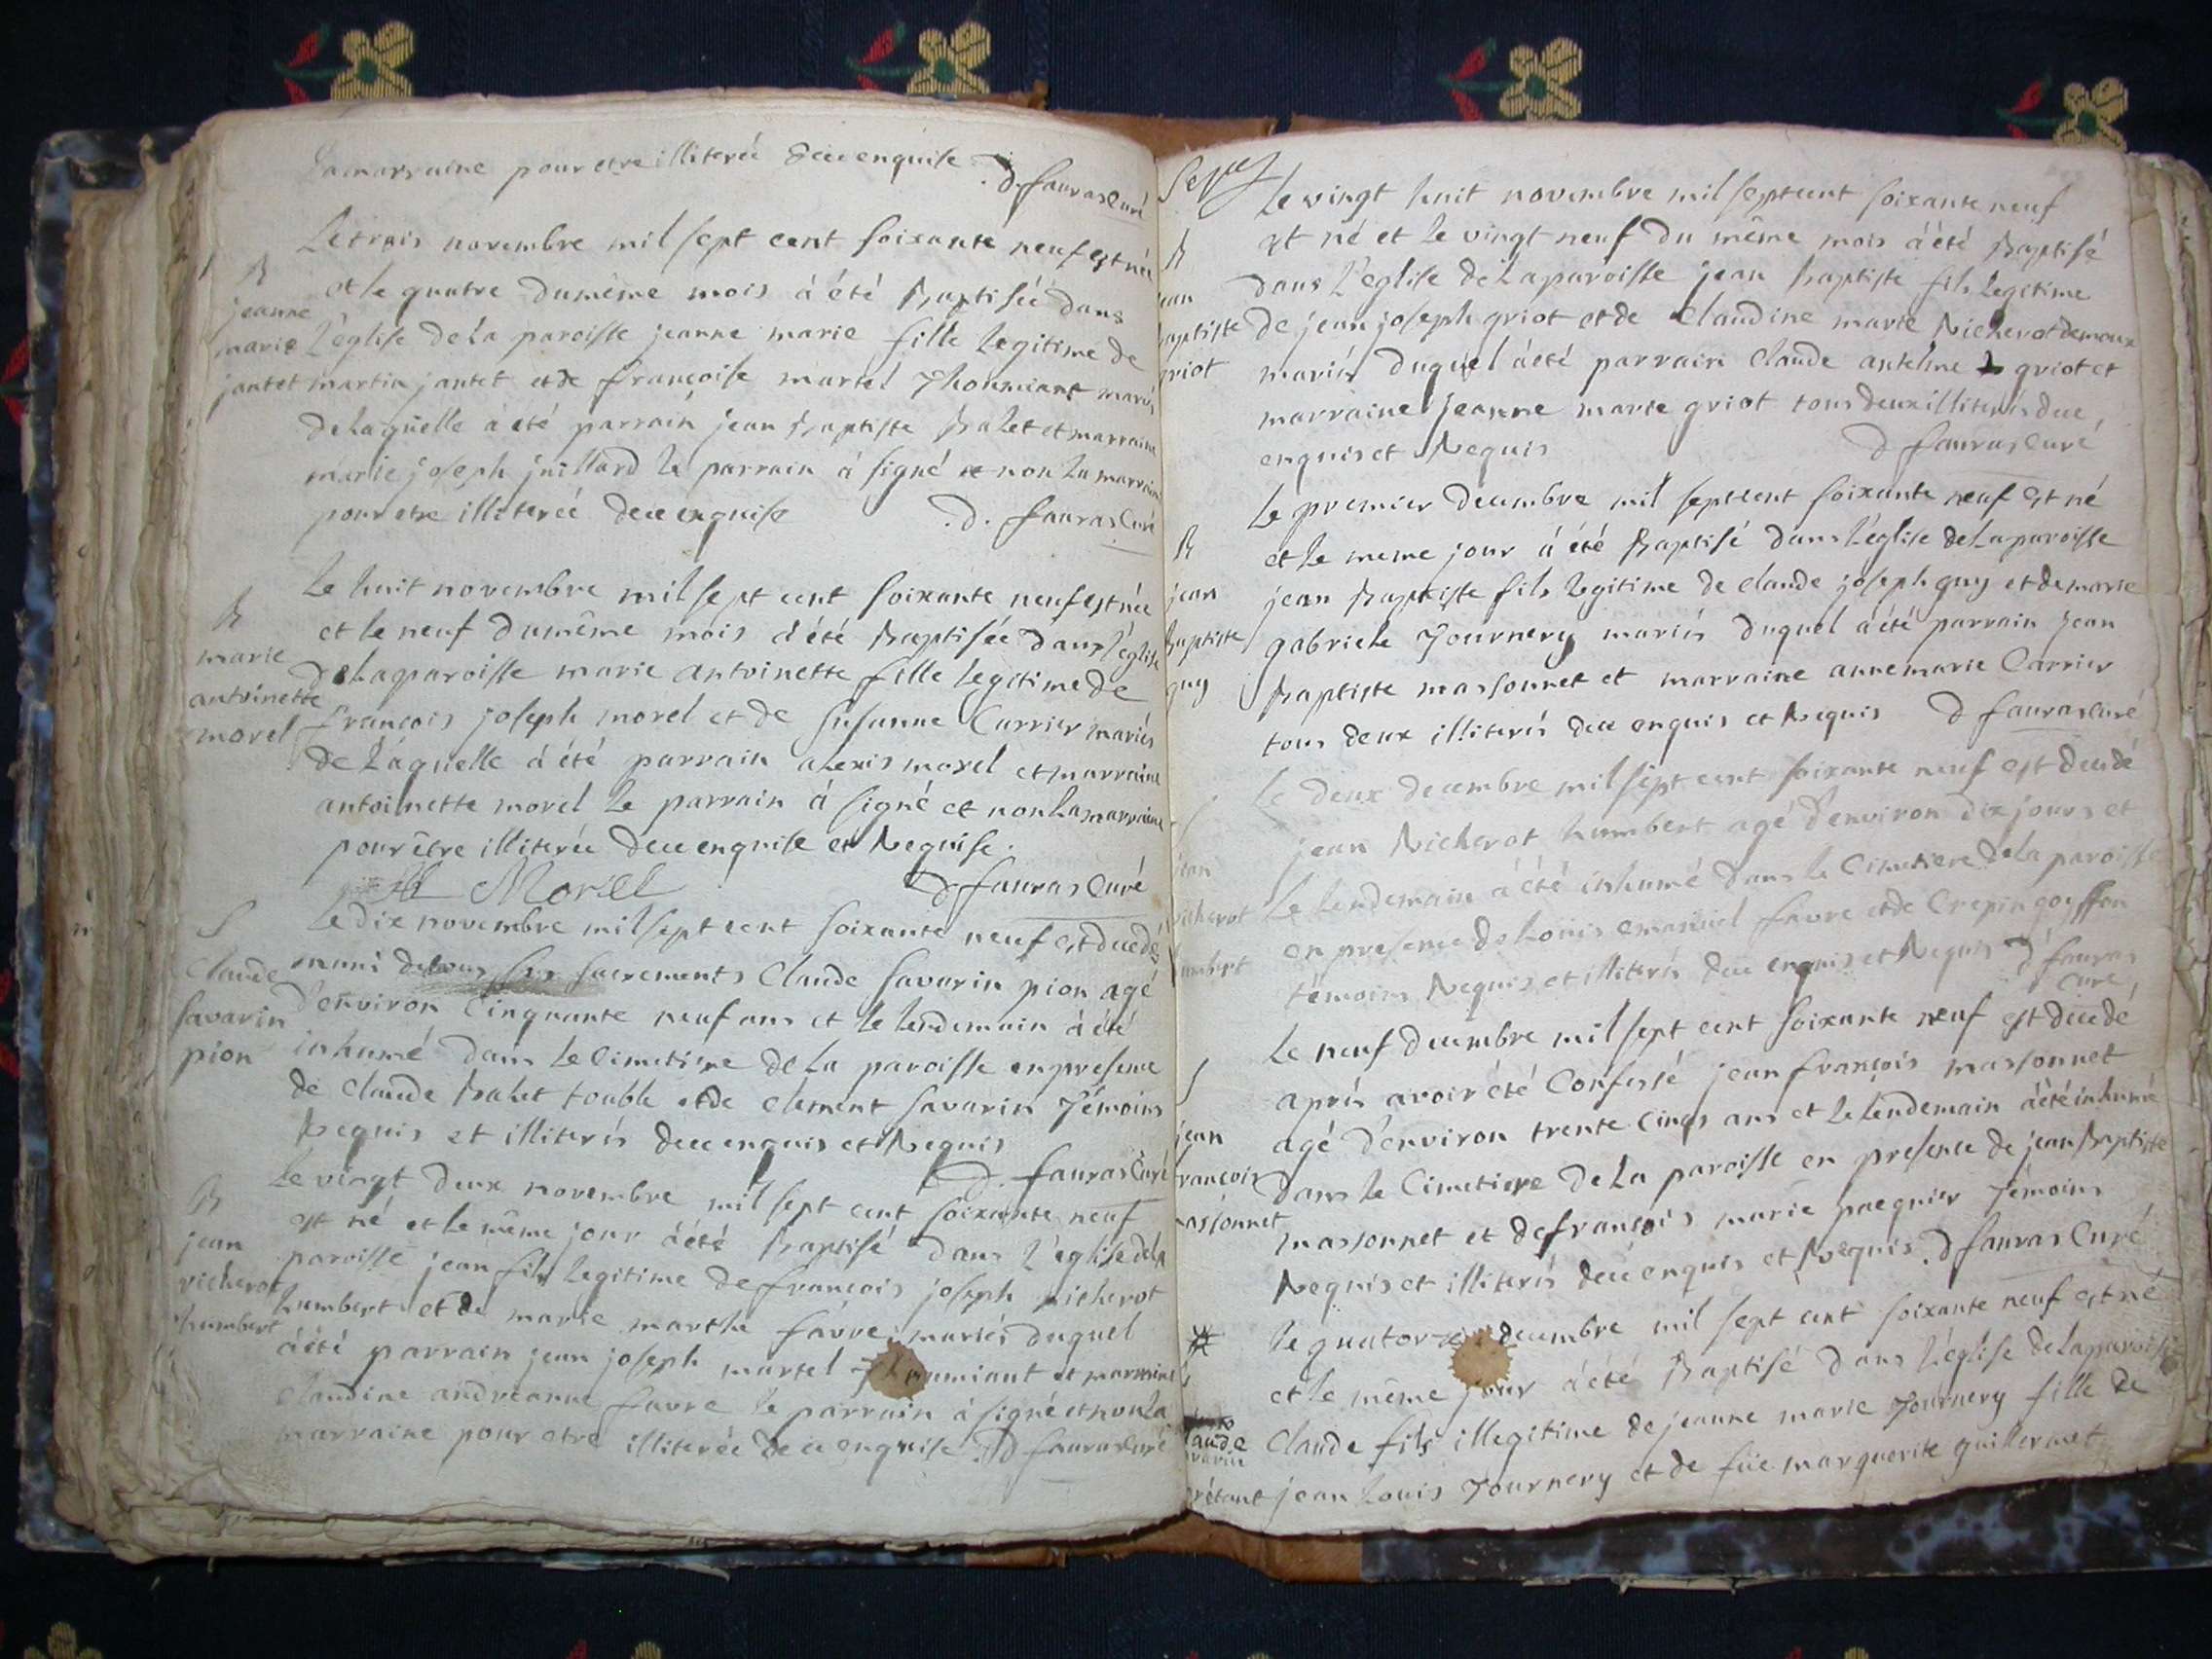 la marraine pour etre illiterée dece enquise
D. fauras Curé
Le trois novembre mil sept cent soixante neuf est née
B
et le quatre du même mois à été Baptisée dans
jeanne
marie
l'eglise de la paroisse jeanne marie fille legitime de
jantet
martin jantet et de françoise martel Thoumiant mariés
de laquelle à été parrain jean Baptiste Balet et marraine
marie joseph juillard le parrain à signé et non la marraine
pour etre illiterée dece enquise D. fauras Curé
Le huit novembre mil sept cent soixante neuf est née
B
et le neuf du même mois à été Baptisée dans l'église
marie
de la paroisse marie antoinette fille legitime de
antoinette
françois joseph morel et de susanne Carrier mariés
morel
de laquelle à été parrain alexis morel et marraine
antoinette morel le parrain à signé et non la marraine
pour être illiterée dece enquise et Requise.
Morel D fauras Curé
S
Le dix novembre mil sept cent soixante neuf est decedé
Claude
muni de tous ses sacrements Claude savarin pion agé
savarin
d'environ cinquante neuf ans et le lendemain à été
pion
inhumé dans le cimetiere de la paroisse en presence
de claude Balet touble et de clement savarin Témoins
Requis et illiterés dece enquis et Requis
D. fauras Curé
B
Le vingt deux novembre mil sept cent soixante neuf
est né et le même jour à été Baptisé dans l'eglise de la
jean
paroisse jean fils legitime de françois joseph richerot
richerot
humbert et de marie marthe favre mariés duquel
humbert
à été parrain jean joseph martel Thoumiant et marraine
claudine andréanne favre le parrain à signé et non la
marraine pour etre illiterée de ce enquise D fauras Curé
Le vingt huit novembre mil sept cent soixante neuf
B
est né et le vingt neuf du même mois à été Baptisé
jean
dans l'eglise de la paroisse jean Baptiste fils legitime
baptiste
de jean joseph griot et de Claudine marie Richerot demoux
griot
mariés duquel à été parrain Claude antelme griot et
marraine jeanne marie griot tous deux illiterés dece
enquis et Requis D fauras Curé
Le premier decembre mil sept cent soixante neuf est né
B
et le meme jour à été Baptisé dans l'église de la paroisse
jean
jean Baptiste fils legitime de claude joseph guy et de marie
Baptiste
gabriele Journery mariés duquel à été parrain jean
guy
Baptiste massonnet et marraine anne marie Carrier
tous deux illiterés dece enquis et Requis D fauras Curé
Le deux decembre mil sept cent soixante neuf est decedé
S
jean Richerot humbert agé d'environ dix jours et
jean
le lendemain à été inhumé dans le Cimetiere de la paroisse
richerot
en presence de Louis emanuel favre et de Crepin goyffon
humbert
témoins Requis et illiterés dece enquis et Requis D fauras
Curé
Le neuf decembre mil sept cent soixante neuf est decedé
S
aprés avoir été Confessé jean françois massonnet
jean
agé d'environ trente cinq ans et le lendemain à été inhumé
francois
dans le Cimetiere de la paroisse en presence de jean Baptiste
massonnet
massonnet et de françois marie paequier Témoins
Requis et illiterés dece enquis et Requis. D fauras Curé
Le quatorze decembre mil sept cent soixante neuf est né
et le même jour à été Baptisé dans l'église de la paroisse
Claude
Claude fils illegitime de jeanne marie Journery fille de
jean Louis Journery et de füe marguerite guillermet